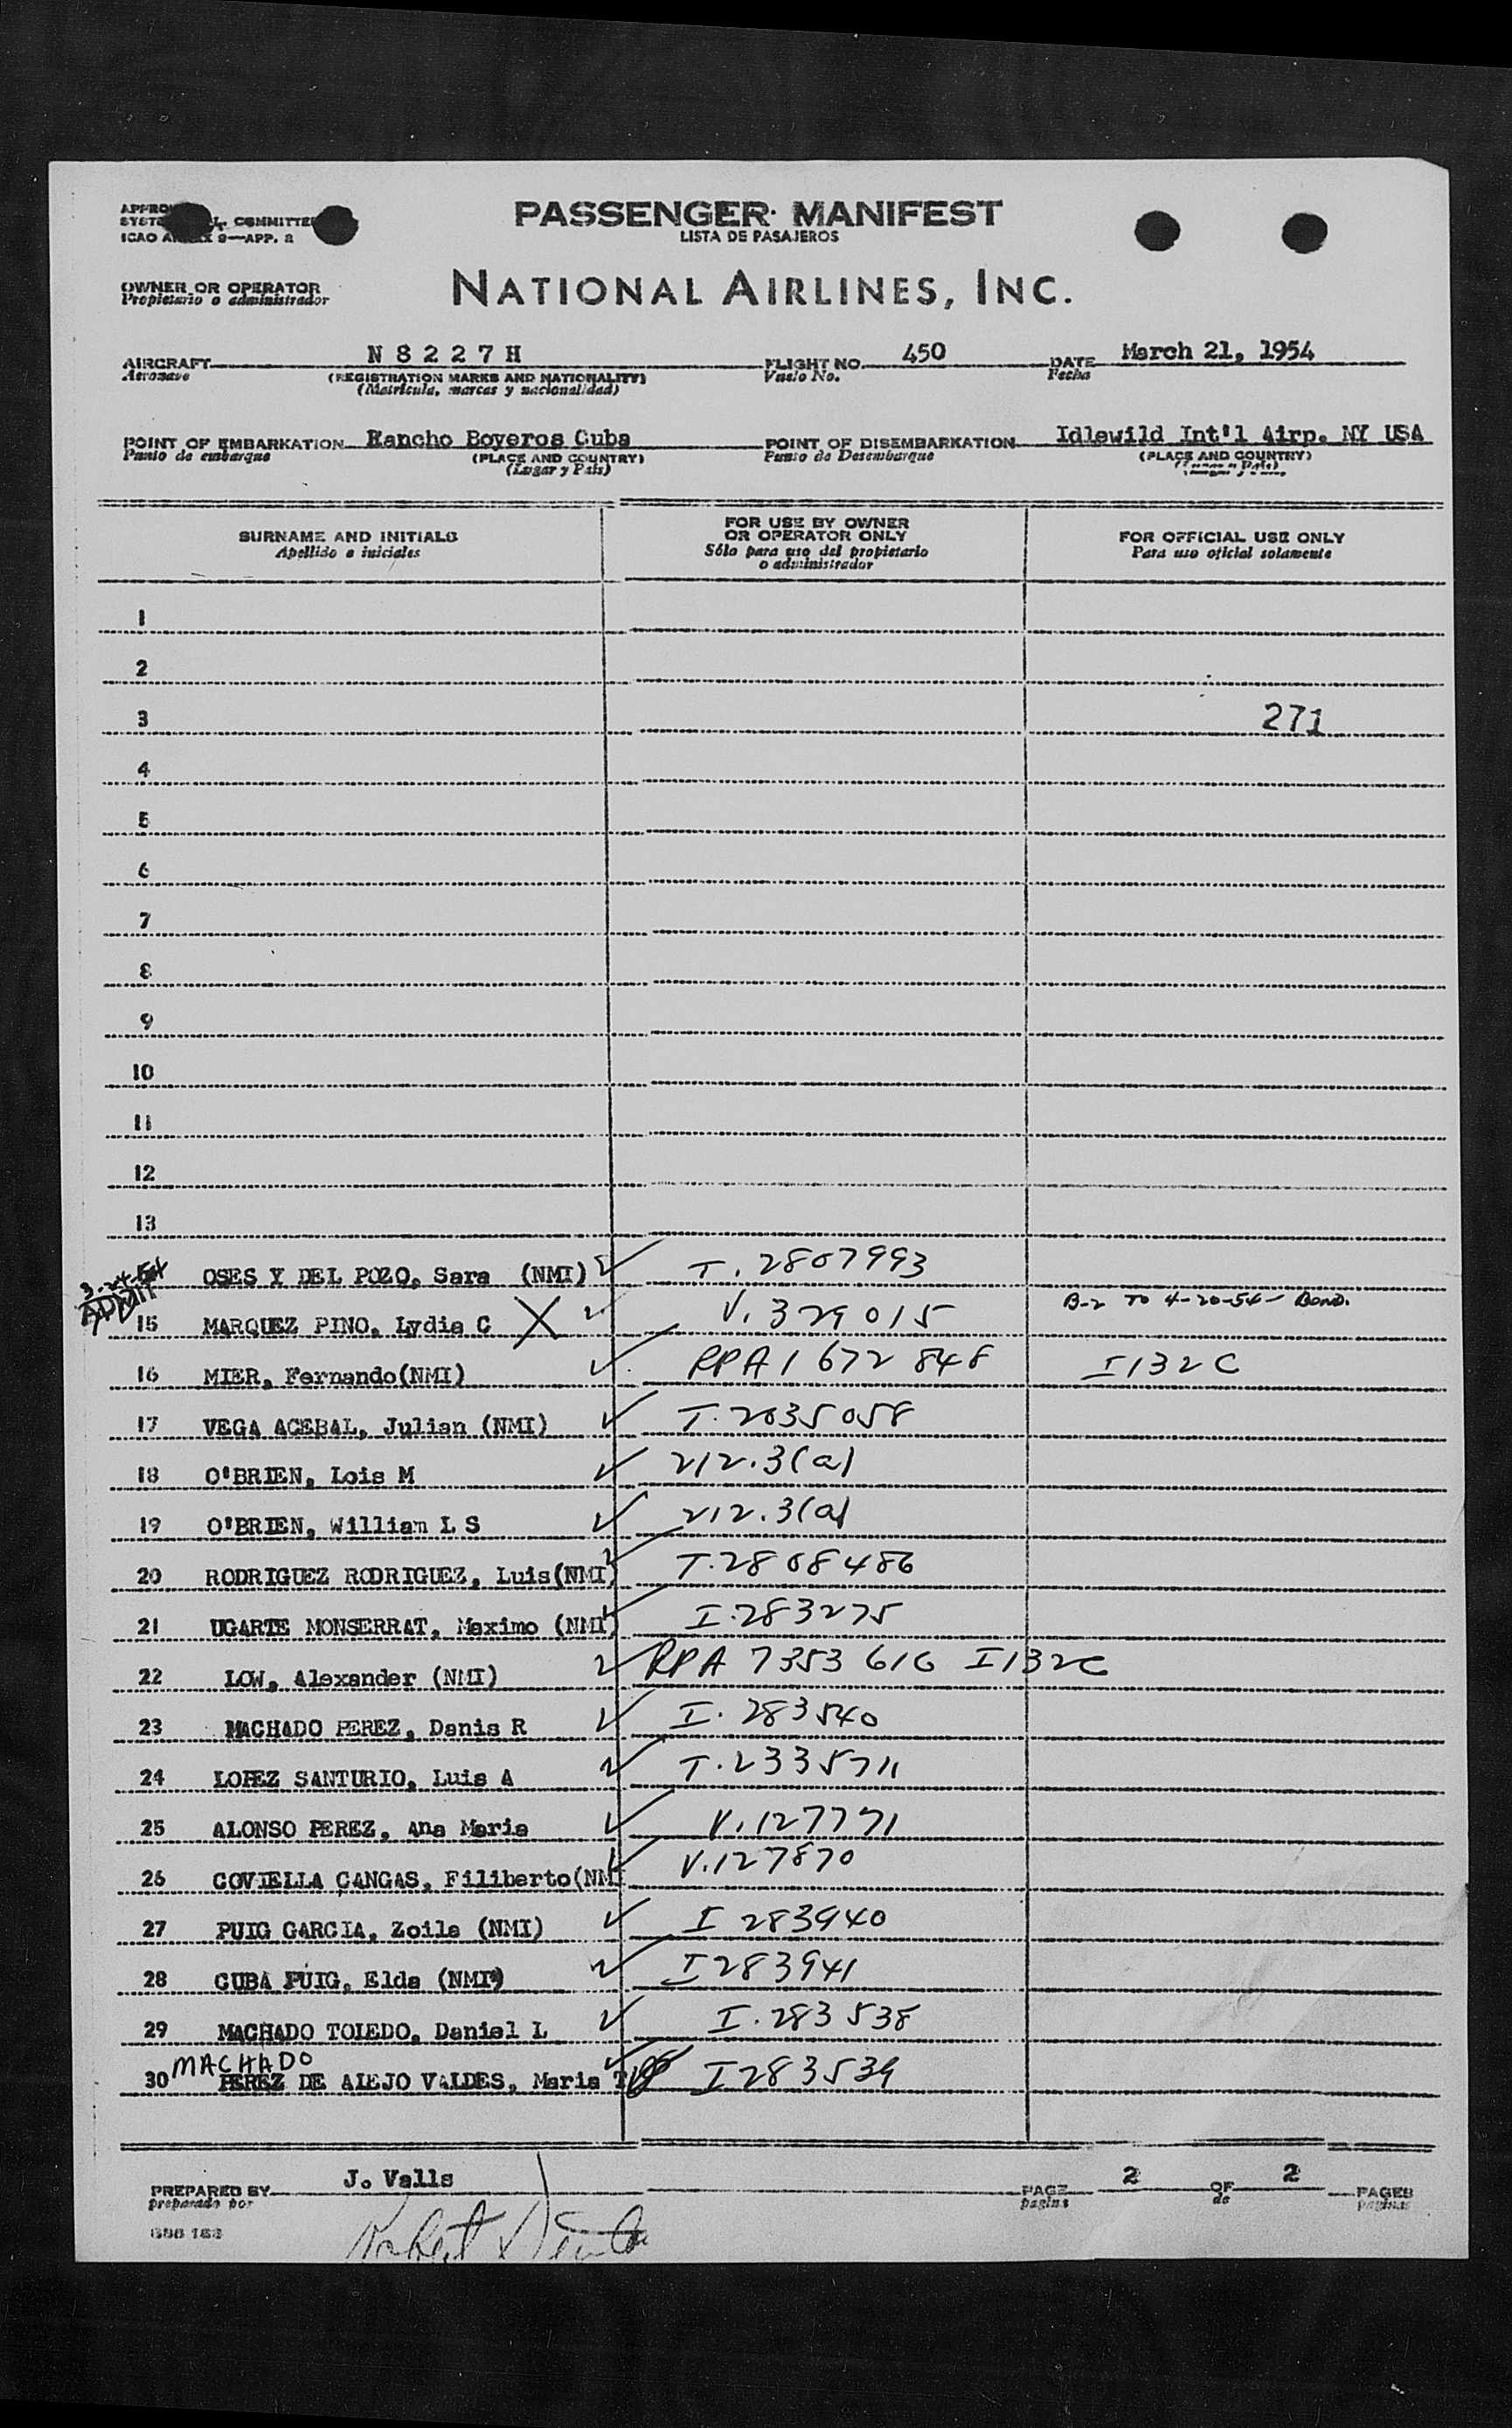 PASSENGER MANIFEST
LISTA DE PASAJEROS
L. COMMITTEE
ICAO 9—APP. 2
OWNER OR OPERATOR
Propietario o administrador
NATIONAL AIRLINES, INC.
AIRCRAFT N 8 2 2 7 H FLIGHT NO. 450 DATE March 21, 1954
Aeronave (REGISTRATION MARKS AND NATIONALITY) Vuelo No. Fecha
(Matrícula, marcas y nacionalidad)
POINT OF EMBARKATION Rancho Boyeros Cuba POINT OF DISEMBARKATION Idlewild Int'l Airp. NY USA
Punto de embarque (PLACE AND COUNTRY) Punto de Desembarque (PLACE AND COUNTRY)
(Lugar y País)
SURNAME AND INITIALS FOR USE BY OWNER OR OPERATOR ONLY FOR OFFICIAL USE ONLY
Apellido e iniciales Sólo para uso del propietario o administrador Para uso oficial solamente
1
2
3 271
4
5
6
7
8
9
10
11
12
13
3-24-54 OSES Y DEL POZO, Sara (NMI) T. 2807993
ADMIT B-2 TO 4-20-54 - BOND.
15 MARQUEZ PINO, Lydia C X V. 329015
16 MIER, Fernando(NMI) RPA 1 672 848 I132C
17 VEGA ACEBAL, Julian (NMI) T. 2035058
18 O'BRIEN, Lois M 212.3(a)
19 O'BRIEN, William L S 212.3(a)
20 RODRIGUEZ RODRIGUEZ, Luis(NMI) T. 2808486
21 UGARTE MONSERRAT, Maximo (NMI) I. 283275
22 LOW, Alexander (NMI) RPA 7353 616 I132C
23 MACHADO PEREZ, Danis R I. 283540
24 LOPEZ SANTURIO, Luis A T. 2335711
25 ALONSO PEREZ, Ana Maria V. 127771
26 COVIELLA CANGAS, Filiberto(NMI V. 127870
27 PUIG GARCIA, Zoila (NMI) I 283940
28 CUBA PUIG, Elda (NMI) I 283941
29 MACHADO TOLEDO, Daniel L I. 283538
MACHADO
30 PEREZ DE ALEJO VALDES, Maria T I 283539
PREPARED BY J. Valls PAGE 2 OF 2 PAGES
preparado por pagina de paginas
Robert